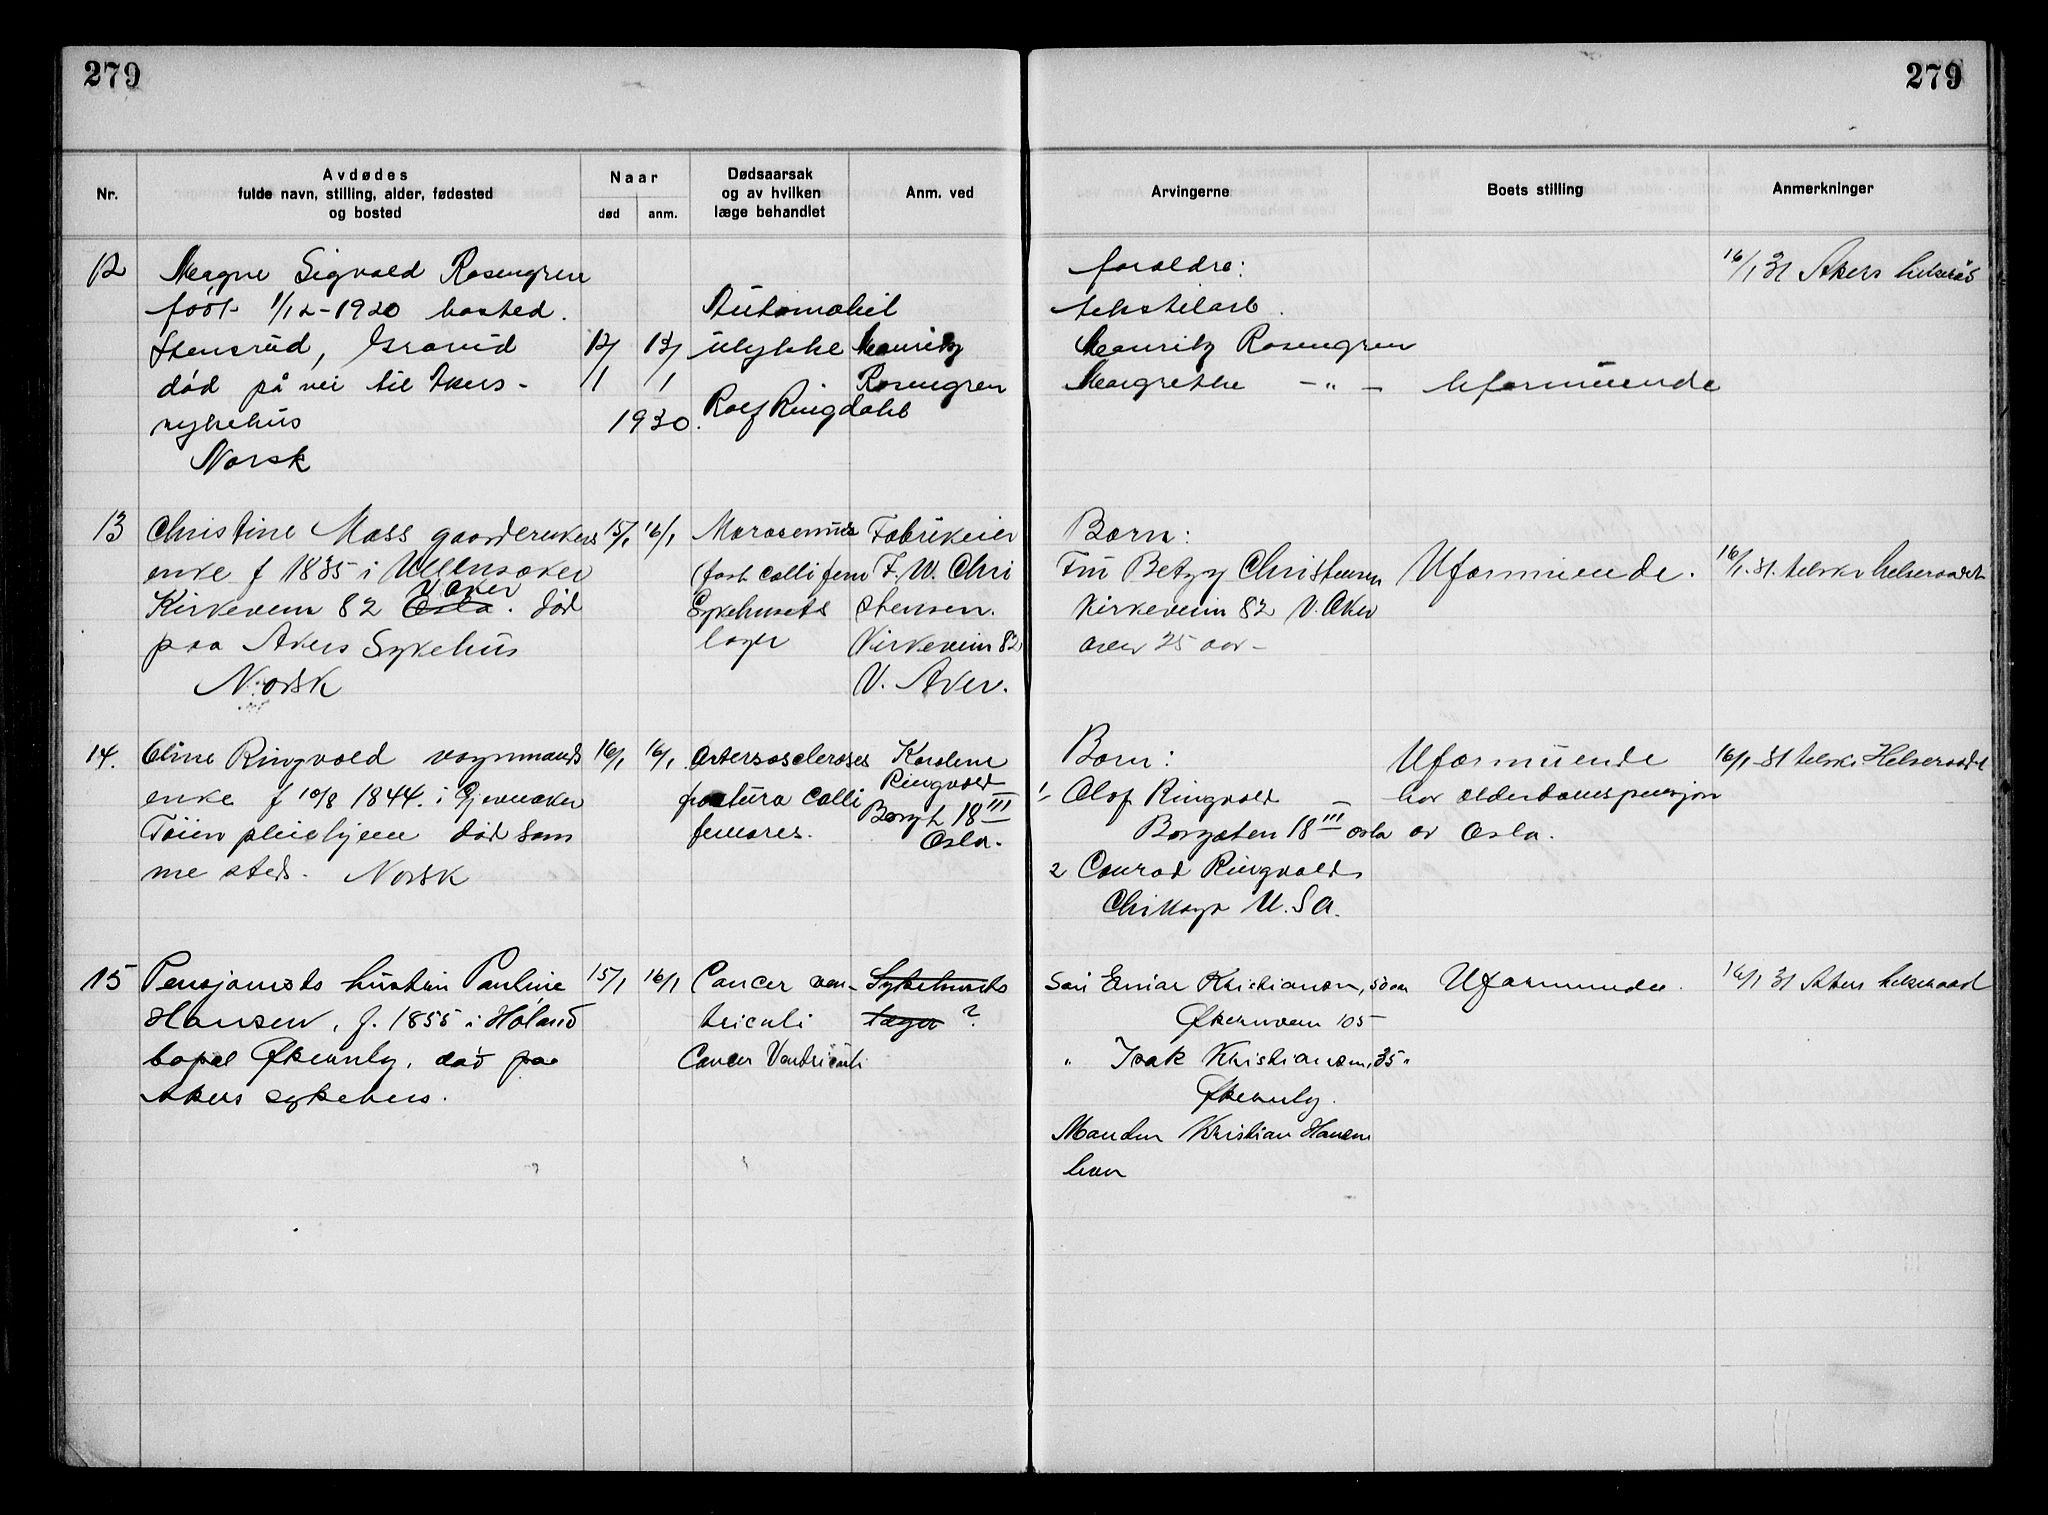 279
279
Nr.
Avdødes
fulde navn, stilling, alder, fødested
og bosted
Naar
død
anm.
Dødsaarsak
og av hvilken
læge behandlet
Anm. ved
Arvingerne
Boets stilling
Anmerkninger
12
Magne Sigvald Rosengren
født 1/12-1920 bosted.
Stensrud, Grorud
død på vei til Akers-
sykehus
Norsk
12/1
13/1
1930.
Automobil
ulykke
Rolf Ringdahl
Mauritz
Rosengren
foreldre:
tekstilarb.
Mauritz Rosengren
Margrethe -"-
Uformuende
16/1 31 Akers helseråd
13
Christine Moss gaardbrukers
enke f 1835 i Ullensaker
V. Aker
Kirkeveien 82 Oslo. død
paa Akers Sykehus
Norsk
15/1
16/1
Marasmus
(fract colli fem
Sykehusets
læger
Fabrikeier
F. W. Chri
stensen.
Kirkeveien 82
V. Aker.
Barn:
Fru Betzy Christensen
Kirkeveien 82 V. Aker
over 25 aar-
Uformuende.
16/1-31. helseraadet
14.
Oline Ringvold vognmands
enke f 10/8 1844. i Gjevnaker
Tøien pleiehjem død sam
me sted. Norsk
16/1
16/1
Arteriosclerosis
fractura colli
femoris.
Karoline
Ringvold
Borggt 18 III
Oslo.
Barn:
1 Olof Ringvold
Borggaten 18 III Oslo
2 Conrad Ringvold
Chikago U.S.A.
Uformuende
har alderdomspensjon
av Oslo.
16/1-31 Helseraadet
15
Pensjonists hustru Pauline
Hansen, f. 1855 i Høland
bopæl Økernby, død paa
Akers sykehus.
15/1
16/1
Cancer ven-
triculi
Cancer Ventriculi
Sykehusets
læger ?
Søn Einar Kristiansen, 50 aar
Økernveien 105
" Isak Kristiansen, 35 "
Økernby.
Manden Kristian Hansen
lever
Uformuende.
16/1 31 Akers helseraad